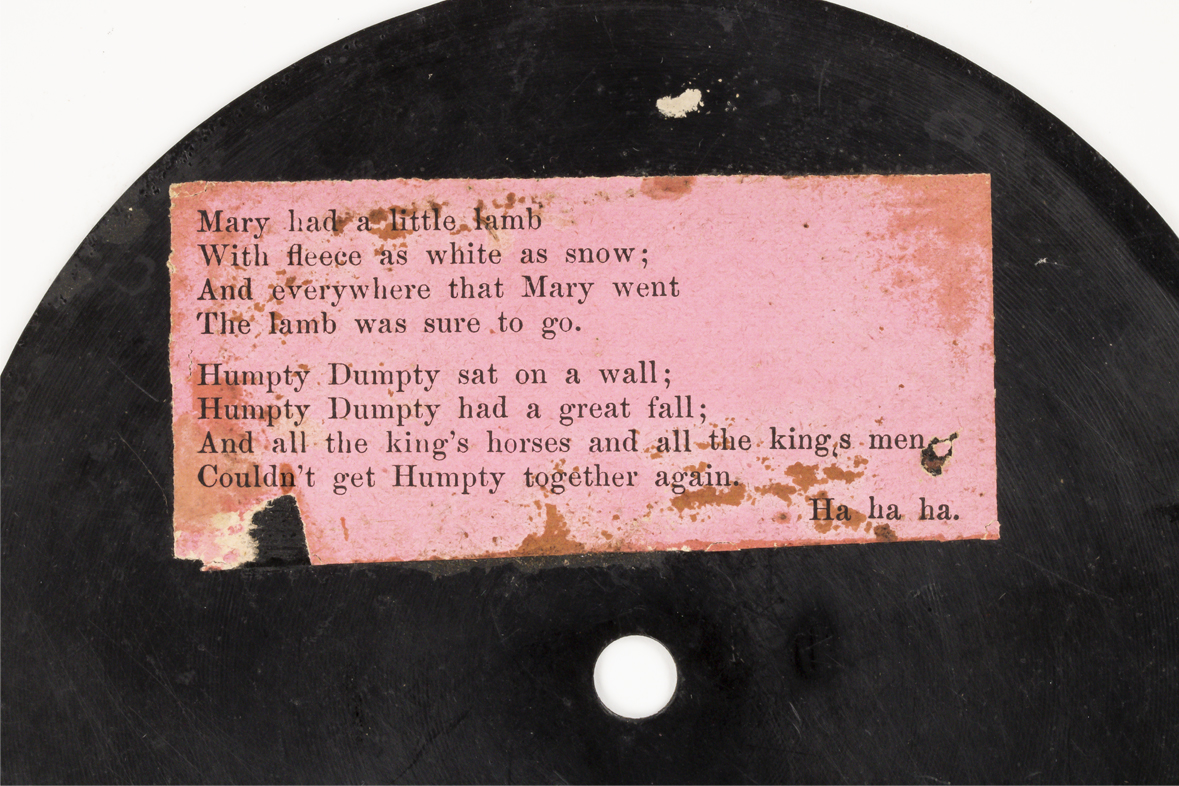 Mary had a little lamb
With fleece as white as snow;
And everywhere that Mary went
The lamb was sure to go.
Humpty Dumpty sat on a wall;
Humpty Dumpty had a great fall;
And all the king's horses and all the king,s men,
Couldn't get Humpty together again.
Ha ha ha.